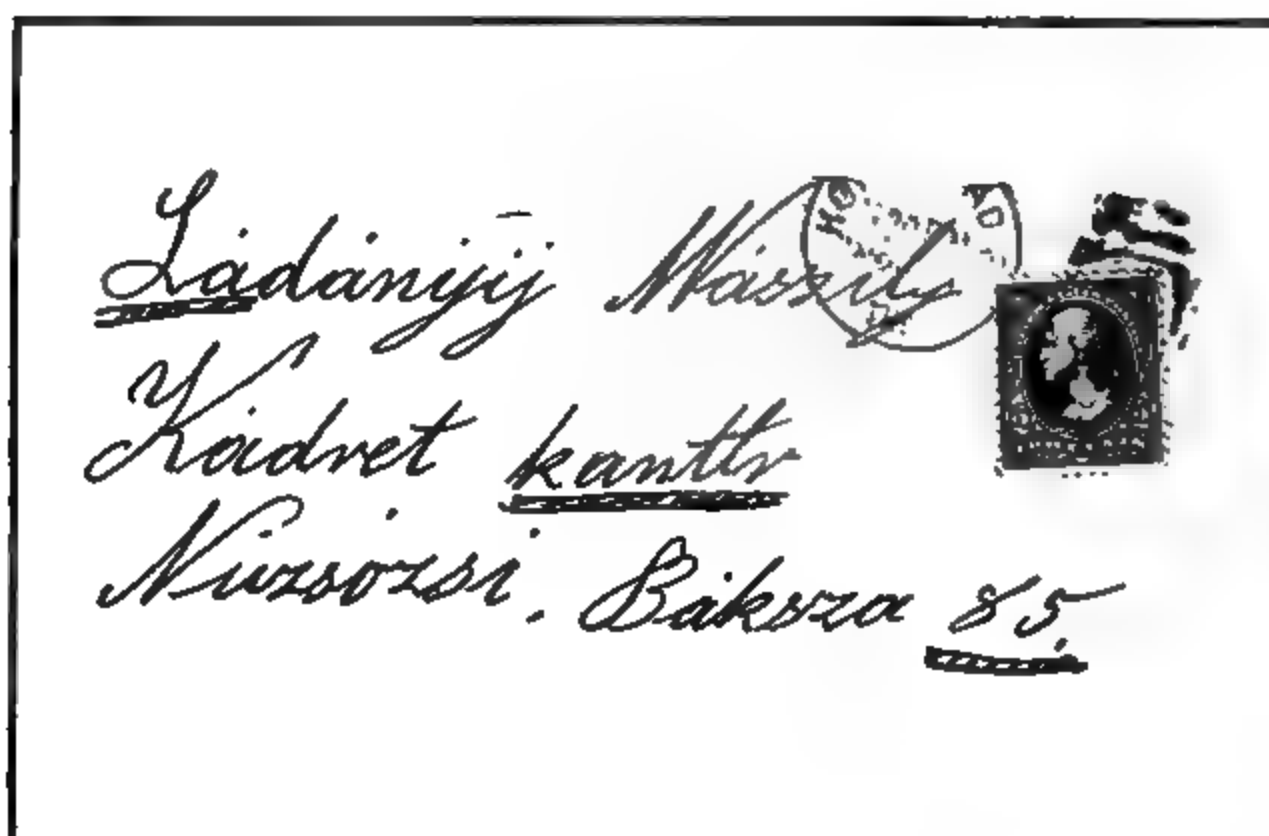 Ládányij Mászily
Kádret kanttr
Nüzsózsi, Báksza 85.